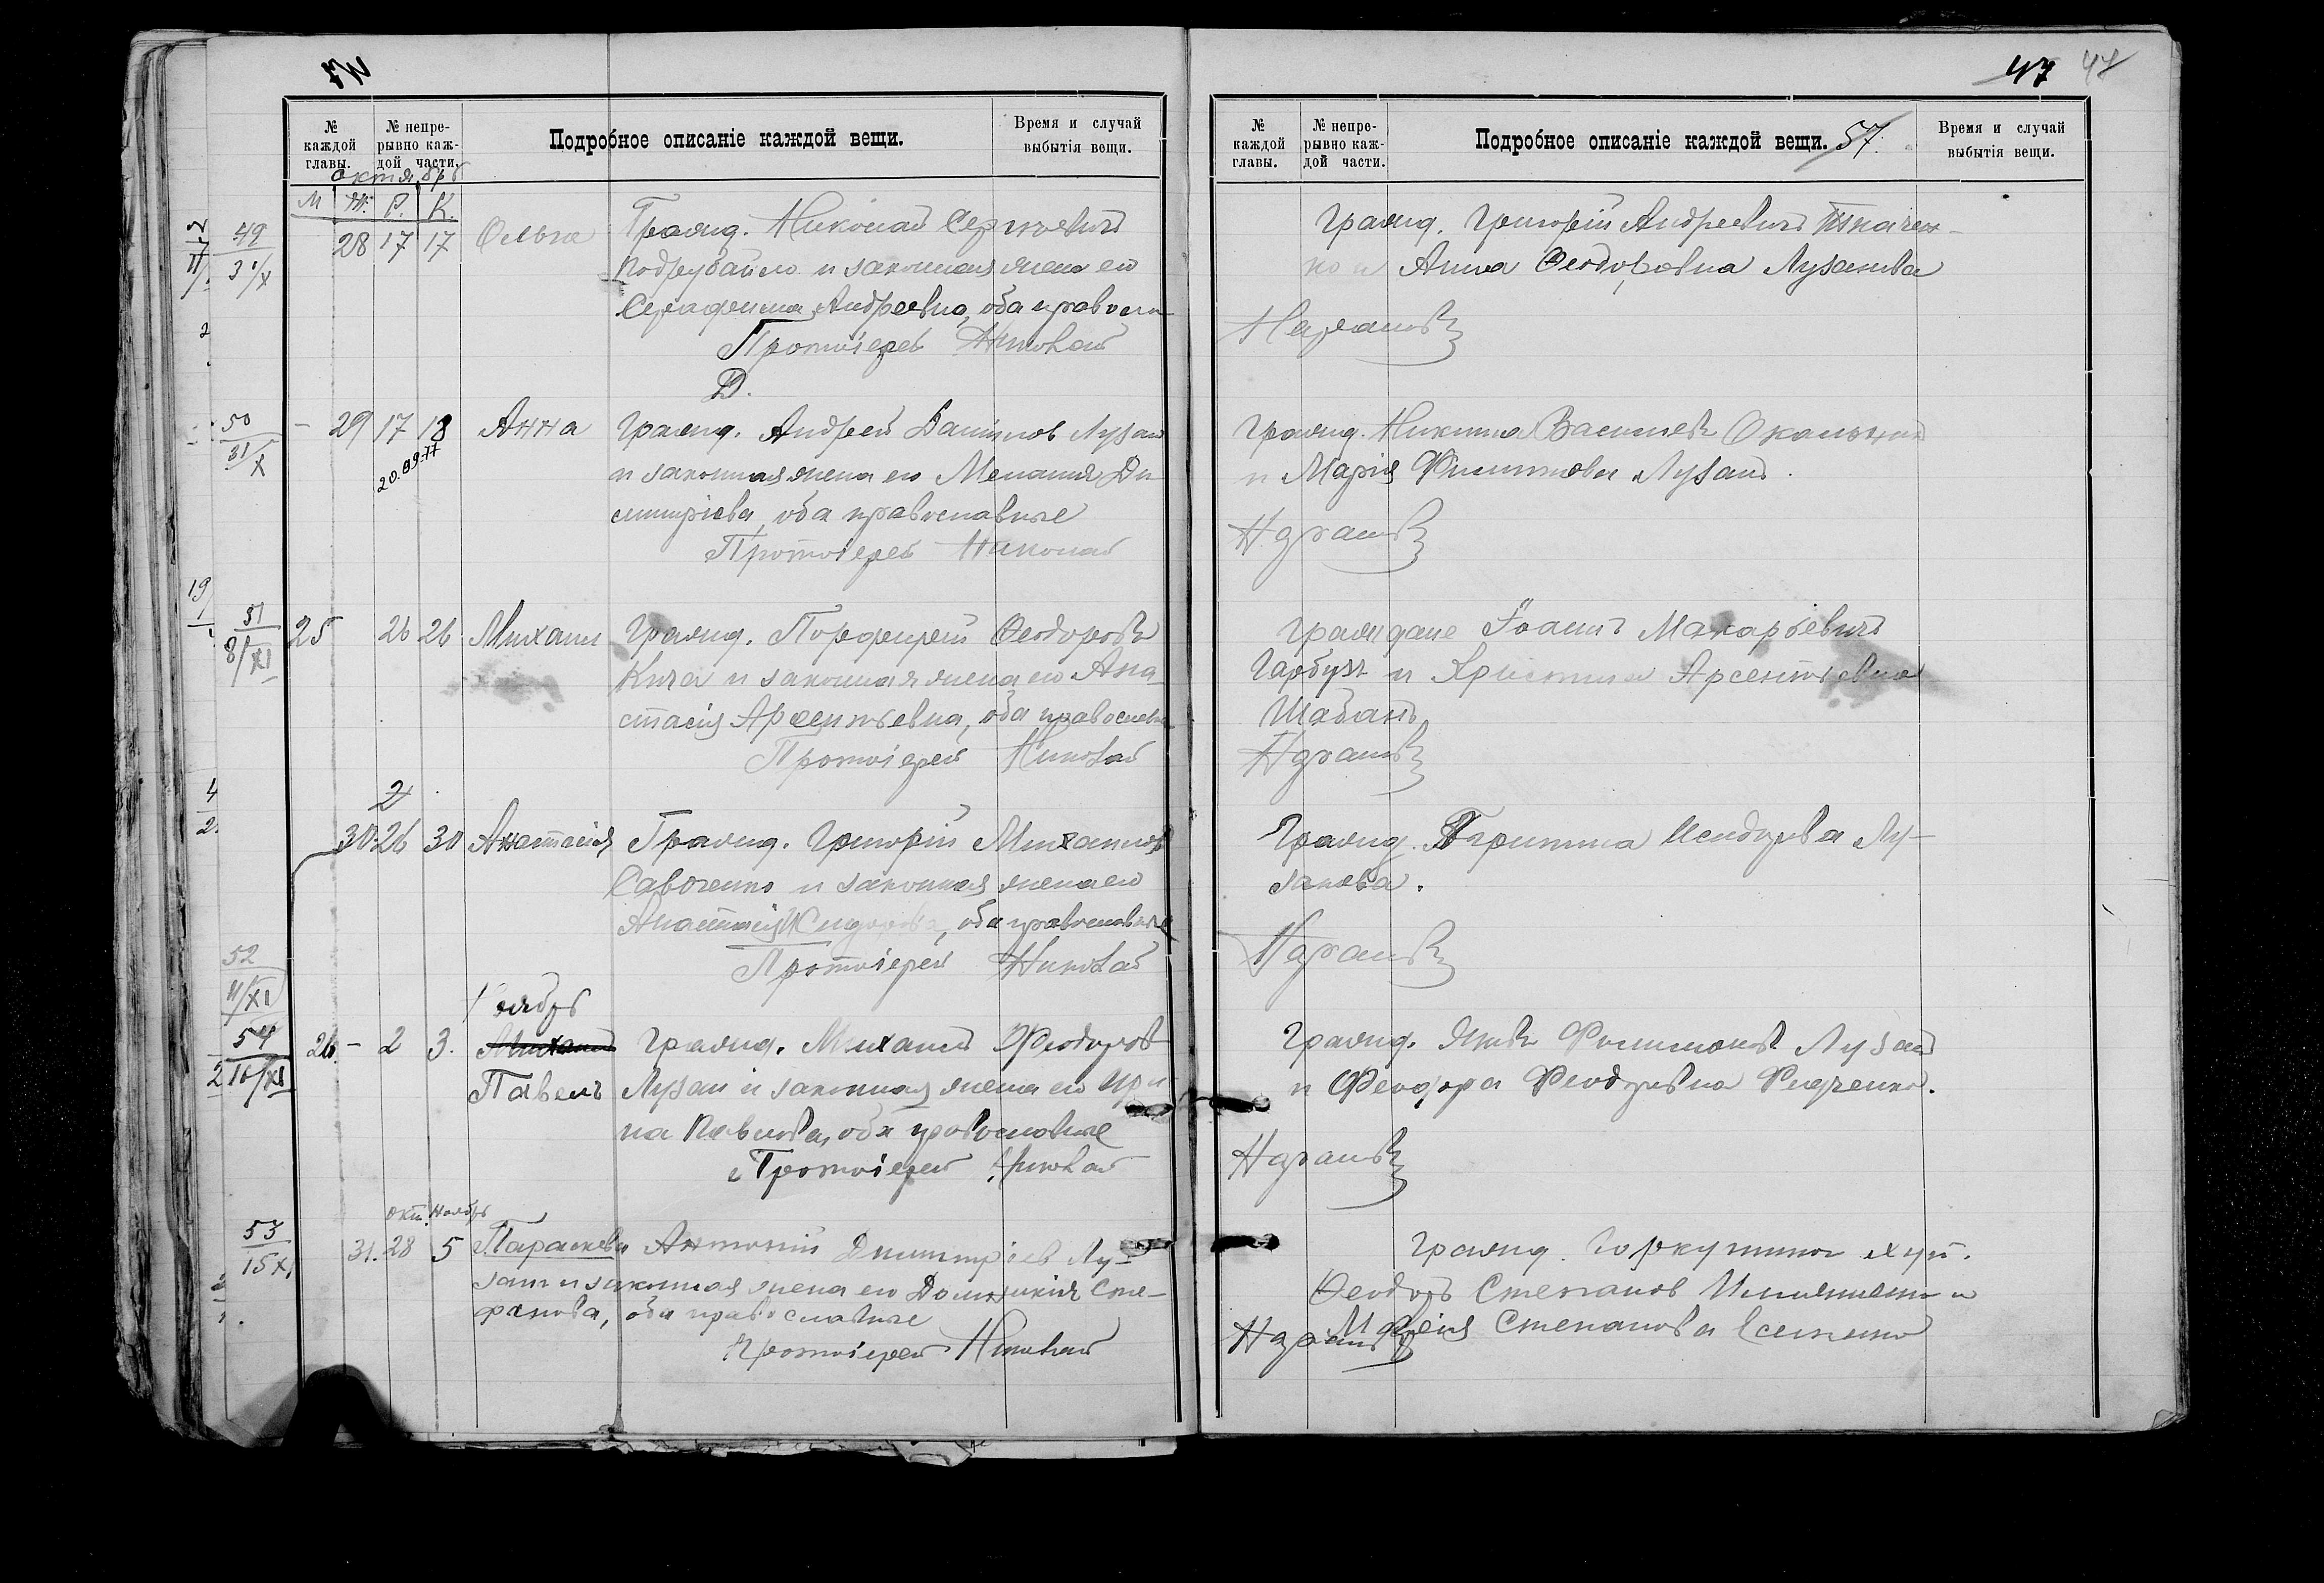 47
№ каждой главы.
№ непрерывно каждой части.
Подробное описаніе каждой вещи.
Время и случай выбытія вещи.
Октябрь
М Ж. Р. К.
49
31/X
28 17 17 Ольга Гражд. Николай Сергѣевичъ
Подрубайло и законная жена его
Серафима Андреевна, оба правосл
Протоіерей Николай
50
31/X
– 29 17 18 Анна Гражд. Андрей Данилов Лузан
20.09.77
и законная жена его Мелания Ди
митріева, оба православные
Протоіерей Николай
51
8/XI
25 26 26 Михаил Гражд. Порфирій Феодоровъ
Кича и законная жена его Ана
стасія Арсентьевна, оба православн
Протоіерей Николай
30. 26 30 Анастасія Гражд. Григорій Михаилов
Савченко и законная жена его
Анастасія Сидорова, оба православные
Протоіерей Николай
52
11/XI
Ноябрь
54
16/XI
26. – 2 3. Михаил Гражд. Михаил Феодоров
Павелъ Лузан и законная жена его Ири
на Павлова, оба православные
Протоіерей Николай
окт. Ноябрь
53
15 XI
31. 28 5 Параскева Антоній Дмитріев Лу-
зан и законная жена его Домникія Сте-
фанова, оба православные
Протоіерей Николай
47 47
№ каждой главы.
№ непрерывно каждой части.
Подробное описаніе каждой вещи. 57.
Время и случай выбытія вещи.
Гражд. Григорій Андреевичъ Ткачен-
ко и Анна Феодоровна Лузанова
Гражд. Никита Васильевъ
и Марія Филиппова Лузан.
Граждане Іоаннъ Макарьевичъ
Гарбузъ и Христина Арсентьевна
Шабанъ
Гражд. Исидорова Лу-
занова.
Гражд. Яковъ Филимонов Лузан
и Феодора Феодоровна Федченко.
Гражд. хут.
Феодоръ Степанов и
Марія Степанова